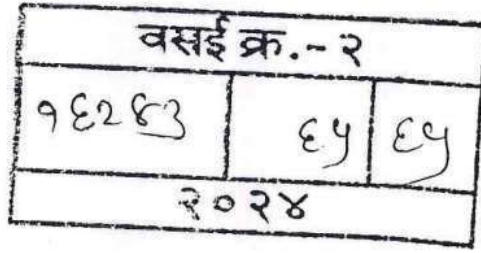 वसई क्र.-२
१६२४३ ६५ ६५
२०२४